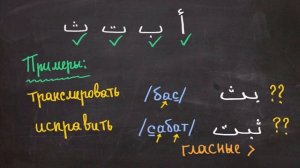 أ ب ت ث
Примеры:
транслировать /бас/ بث ??
исправить /сабат/ ثبت ??
гласные >